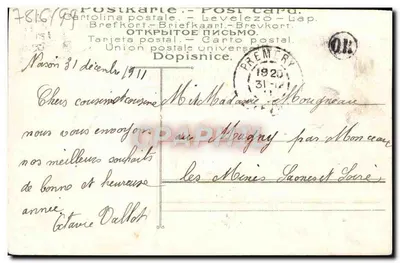 7816/99
Postkarte. - Post card.
Cartolina postale. - Levelező-Lap.
Brefkort.-Briefkaart.-Brevkort.
ОТКРЫТОЕ ПИСЬМО.
Tarjeta postal. - Carto postal.
Union postale universelle
Dopisnice.
31 décembre 1911
PREMERY
19 20
31-12
OR
Chers cousin cousine
nous vous envoyons
nos meilleurs souhaits
de bonne et heureuse
année
Octavie Vallot
Mr et Madame Mougneau
au Magny par Monceau
les Mines Saone et Loire